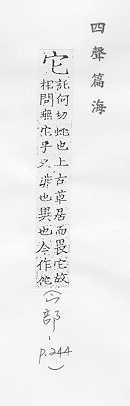 四聲篇海
它
託何切虵也上古草居而畏它故
相問無它乎又非也異也今作他
(宀部-
p.244)